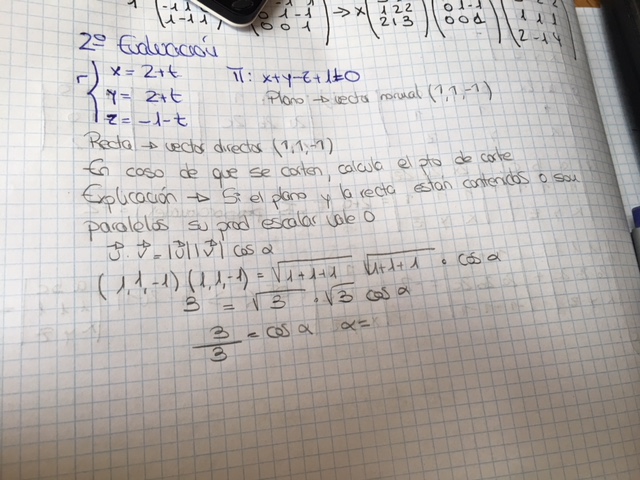 1 (-1 1 / 1 -1 1) (0 1 -1 / 0 0 1) → x (1 2 2 / 2 1 3) (0 1 -1 / 0 0 1) (1 1 1 / 2 -1 4)
2º Evaluación
r { x = 2+t π: x+y-z+1=0
y = 2+t Plano → vector normal (1,1,-1)
z = -1-t
Recta → vector director (1,1,-1)
En caso de que se corten, calcula el pto de corte
Explicación → Si el plano y la recta están contenidos o son
paralelos su prod escalar vale 0
v⃗ · v⃗ = |v⃗| |v⃗| cos α
(1,1,-1) (1,1,-1) = √1+1+1 √1+1+1 · cos α
3 = √3 · √3 cos α
3/3 = cos α α=